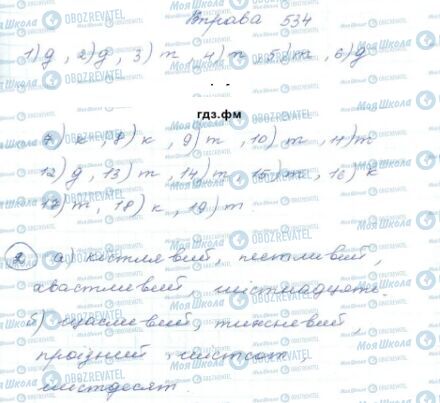 Вправа 534
1) д, 2) д, 3) т, 4) т, 5) т, 6) д
гдз.фм
7) к, 8) к, 9) т, 10) т, 11) т
12) д, 13) т, 14) т, 15) т, 16) к
17) т, 18) к, 19) т.
2 а) кістлявий, пестливий,
хвастливий, шістнадцять.
б) щасливий, тижневий,
проїзний, шістсот
шістдесят.